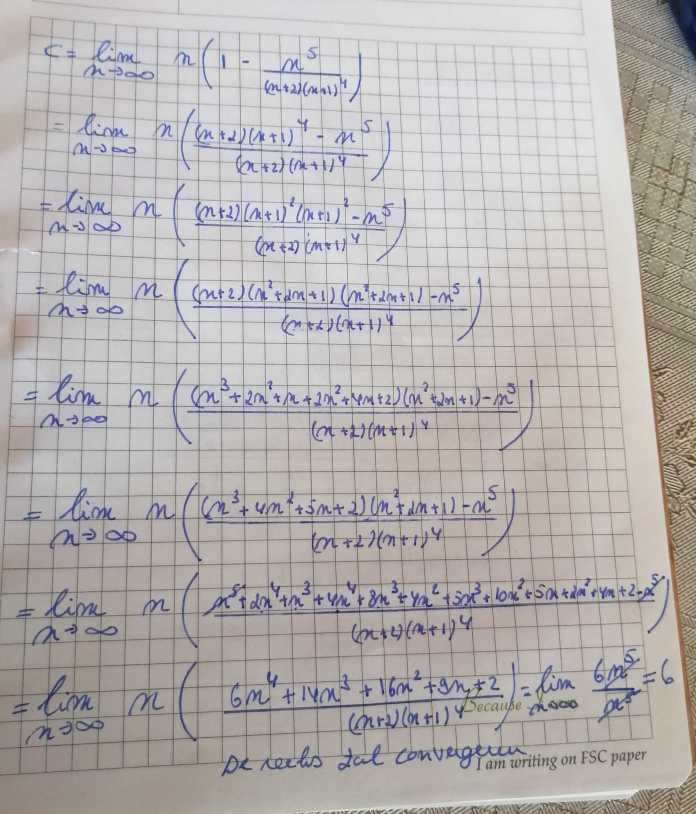 C = lim n→∞ n(1 - n⁵/((n+2)(n+1)⁴))
= lim n→∞ n(((n+2)(n+1)⁴ - n⁵)/((n+2)(n+1)⁴))
= lim n→∞ n(((n+2)(n+1)²(n+1)² - n⁵)/((n+2)(n+1)⁴))
= lim n→∞ n(((n+2)(n²+2n+1)(n²+2n+1) - n⁵)/((n+2)(n+1)⁴))
= lim n→∞ n(((n³+2n²+n+2n²+4n+2)(n²+2n+1) - n⁵)/((n+2)(n+1)⁴))
= lim n→∞ n(((n³+4n²+5n+2)(n²+2n+1) - n⁵)/((n+2)(n+1)⁴))
= lim n→∞ n((n⁵+2n⁴+n³+4n⁴+8n³+4n²+5n³+10n²+5n+2n²+4n+2-n⁵)/((n+2)(n+1)⁴))
= lim n→∞ n((6n⁴+14n³+16n²+9n+2)/((n+2)(n+1)⁴)) = lim n→∞ 6n⁵/n⁵ = 6
Because
De reeks zal convergeren
I am writing on FSC paper